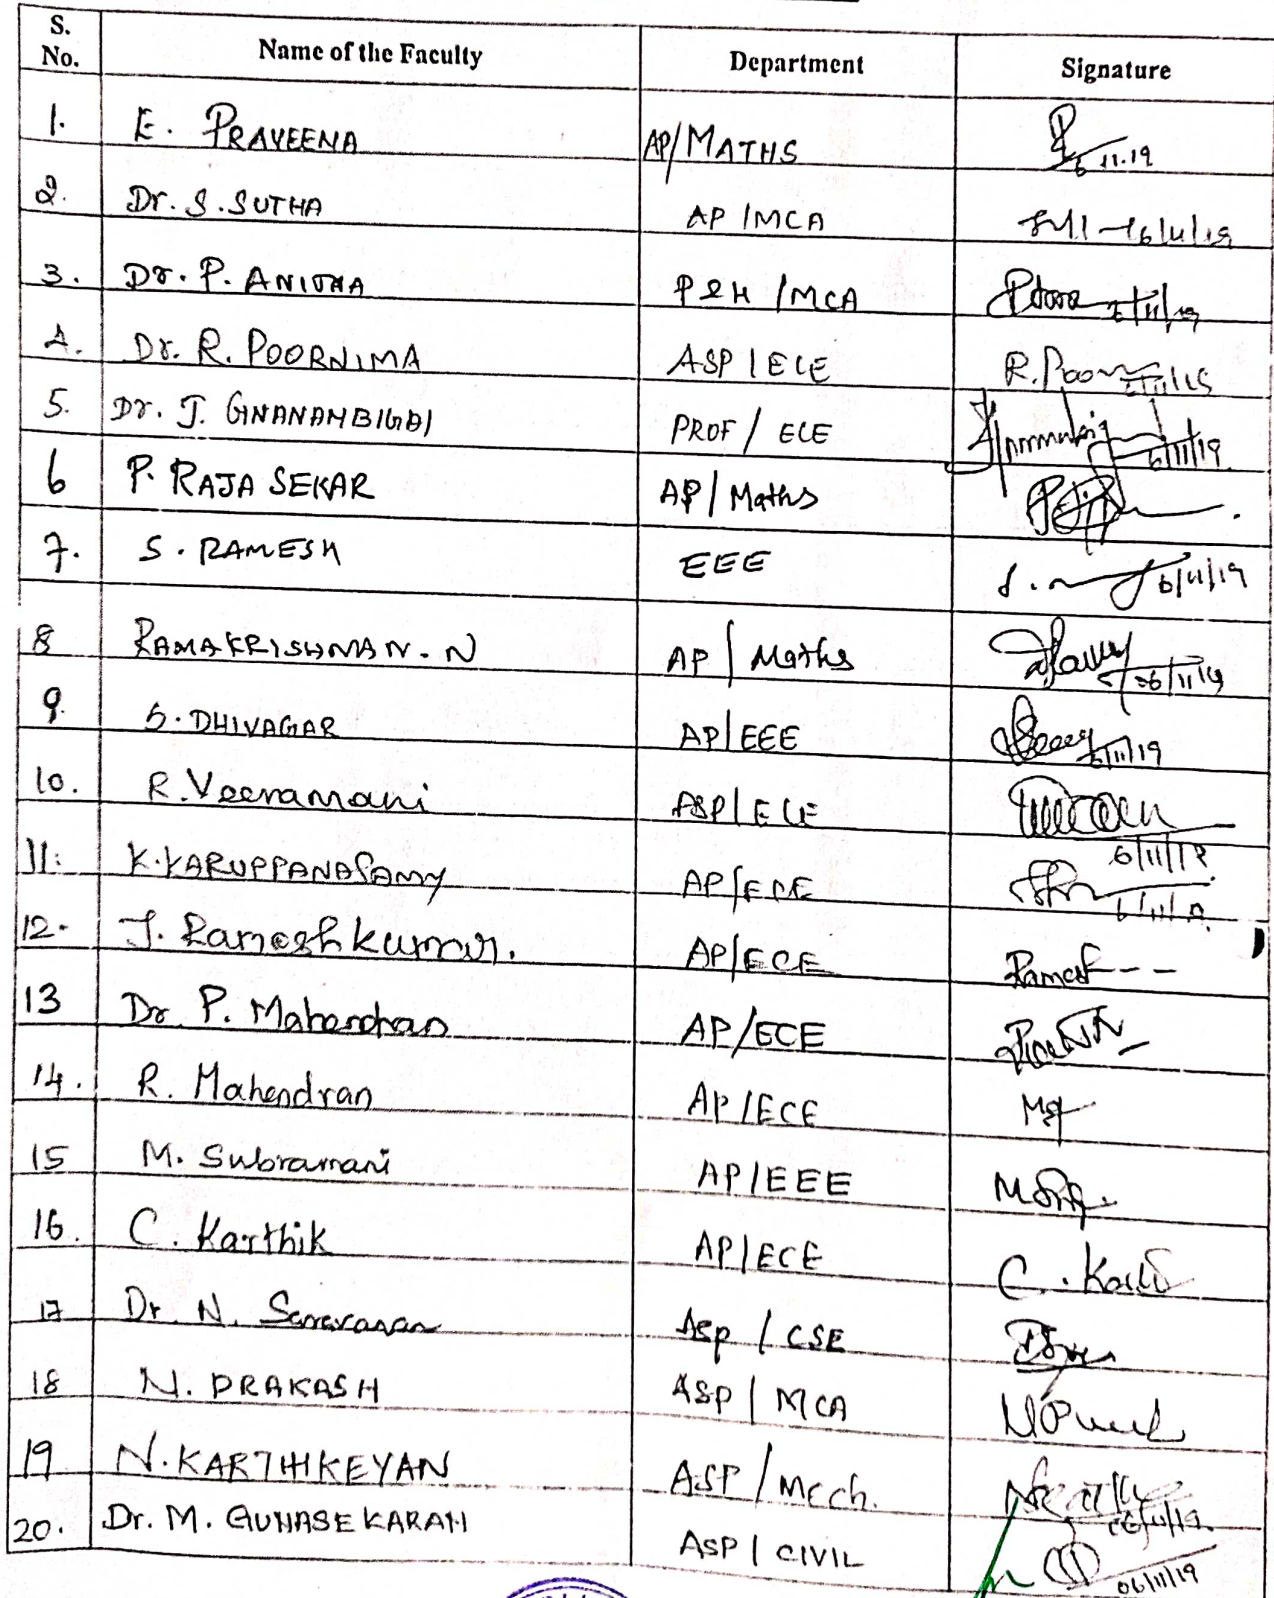 S. No. Name of the Faculty Department Signature
1. E. PRAVEENA AP/MATHS 6.11.19
2. Dr. S. SUTHA AP/MCA 6/11/19
3. Dr. P. ANITHA P&H/MCA 6/11/19
4. Dr. R. POORNIMA ASP/ECE R.Poor
5. Dr. J. GNANAMBIGAI PROF/ECE 6/11/19
6 P. RAJA SEKAR AP/Maths
7. S. RAMESH EEE 6/11/19
8 RAMAKRISHNAN. N AP/Maths 06/11/19
9. S. DHIVAGAR AP/EEE 6/11/19
10. R. Veeramani ASP/ECE 6/11/19
11. K. KARUPPANASAMY AP/ECE
12. J. Rameshkumar. AP/ECE Ramesh
13 Dr. P. Mahendran AP/ECE
14. R. Mahendran AP/ECE
15 M. Subramani AP/EEE
16. C. Karthik AP/ECE C. Karthi
17 Dr. N. Saravanan Asp/CSE
18 N. PRAKASH ASP/MCA
19 N. KARTHIKEYAN ASP/Mech. 06/11/19.
20. Dr. M. GUNASEKARAN ASP/CIVIL 06/11/19